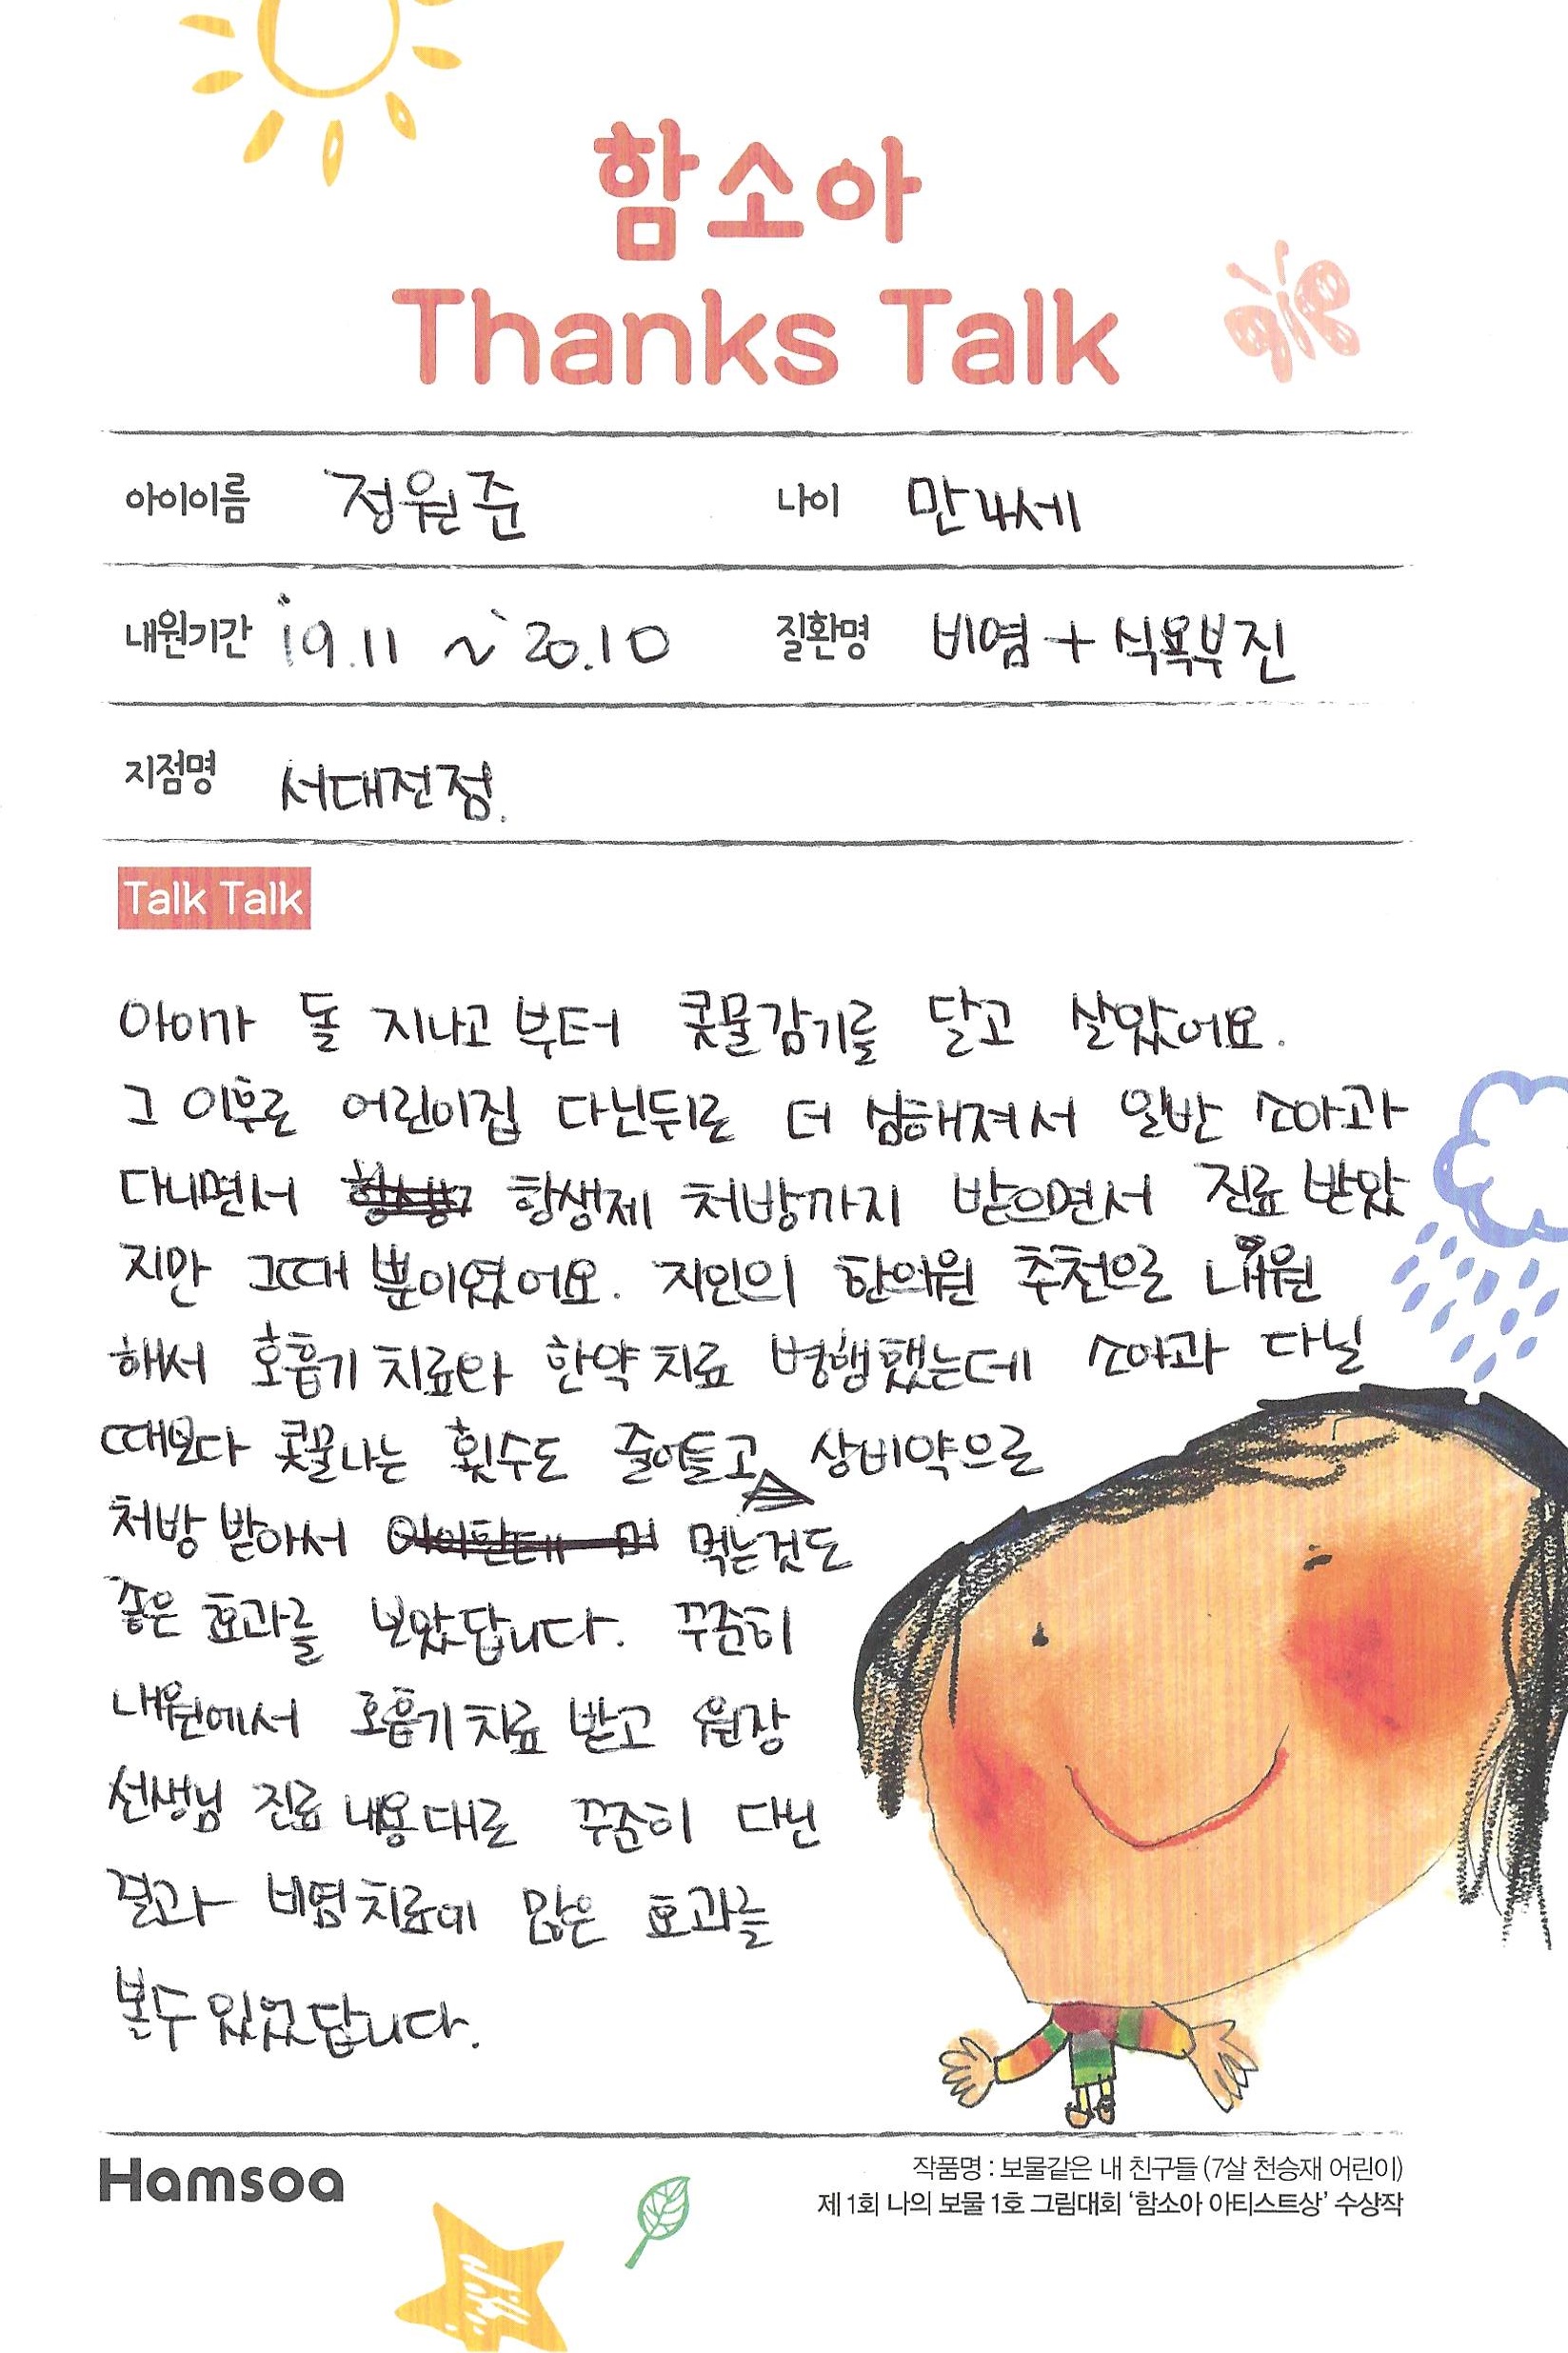 함소아
Thanks Talk
아이이름 정원준 나이 만4세
내원기간 '19.11 ~ '20.10 질환명 비염 + 식욕부진
지점명 서대전점.
Talk Talk
아이가 돌 지나고 부터 콧물감기를 달고 살았어요.
그 이후로 어린이집 다닌뒤로 더 심해져서 일반 소아과
다니면서 항생제 처방까지 받으면서 진료 받았
지만 그때 뿐이였어요. 지인의 한의원 추천으로 내원
해서 호흡기 치료와 한약 치료 병행했는데 소아과 다닐
때보다 콧물나는 횟수도 줄어들고 상비약으로
처방 받아서 먹는것도
좋은 효과를 보았답니다. 꾸준히
내원에서 호흡기 치료 받고 원장
선생님 진료 내용대로 꾸준히 다닌
결과 비염치료에 많은 효과를
볼수 있었답니다.
Hamsoa
작품명 : 보물같은 내 친구들 (7살 천승재 어린이)
제 1회 나의 보물 1호 그림대회 '함소아 아티스트상' 수상작